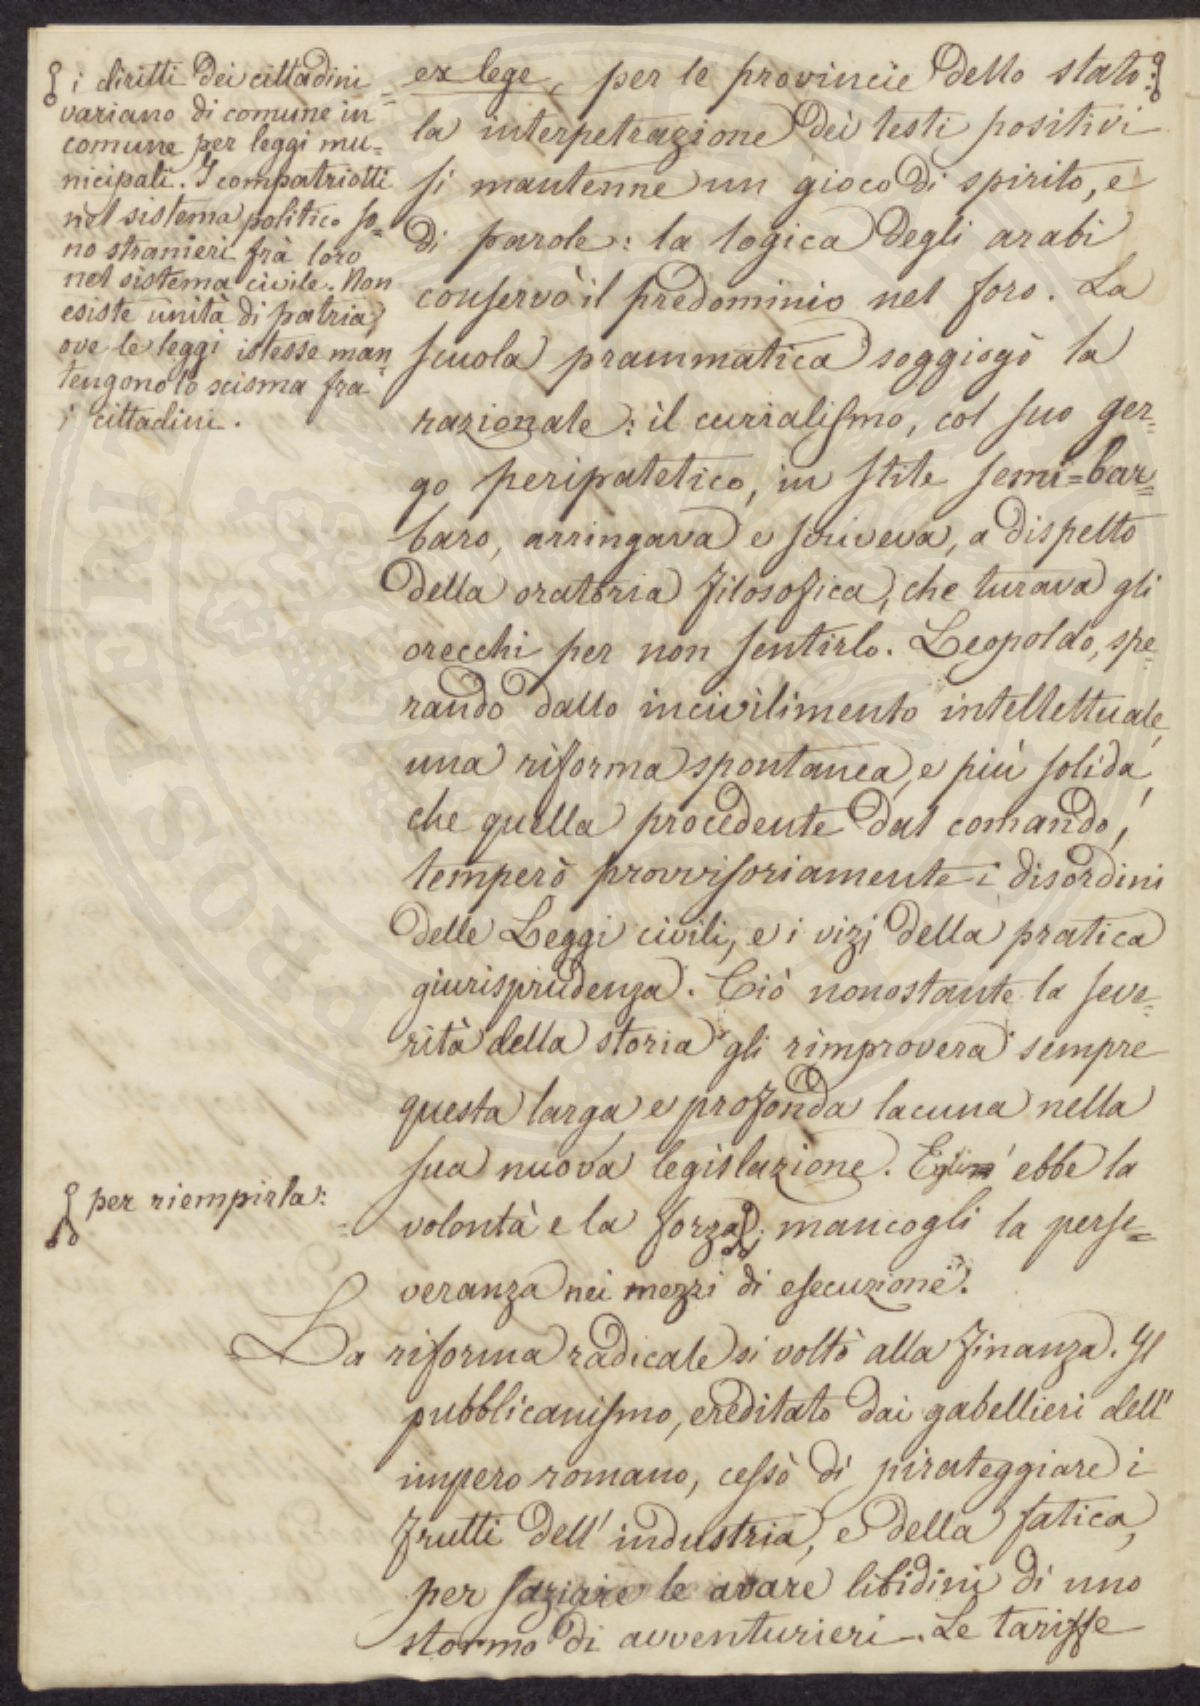 i diritti dei cittadini
variano di comune in
comune per leggi mu=
nicipali. I compatriotti
nel sistema politico so=
no stranieri frà loro
nel sistema civile. Non
esiste unità di patria,
ove le leggi istesse man=
tengono lo scisma fra
i cittadini.
ex lege, per le provincie dello stato:
la interpetrazione dei testi positivi
si mantenne un gioco di spirito, e
di parole: la logica degli arabi
conservò il predominio nel foro. La
scuola prammatica soggiogò la
razionale: il curialismo, col suo ger=
go peripatetico, in stile semi=bar=
baro, arringava e scriveva, a dispetto
della oratoria filosofica, che turava gli
orecchi per non sentirlo. Leopoldo, spe=
rando dallo incivilimento intellettuale,
una riforma spontanea, e più solida,
che quella procedente dal comando,
temperò provvisoriamente i disordini
delle Leggi civili, e i vizj della pratica
giurisprudenza. Ciò nonostante la seve=
rità della storia gli rimprovera sempre
questa larga e profonda lacuna nella
sua nuova legislazione. Egli ebbe la
volontà e la forza; mancogli la perse=
veranza nei mezzi di esecuzione.
per riempirla:
La riforma radicale si voltò alla finanza. Il
pubblicanismo, ereditato dai gabellieri dell'
impero romano, cessò di pirateggiare i
frutti dell' industria, e della fatica,
per saziare le avare libidini di uno
stormo di avventurieri. Le tariffe
PROSIT